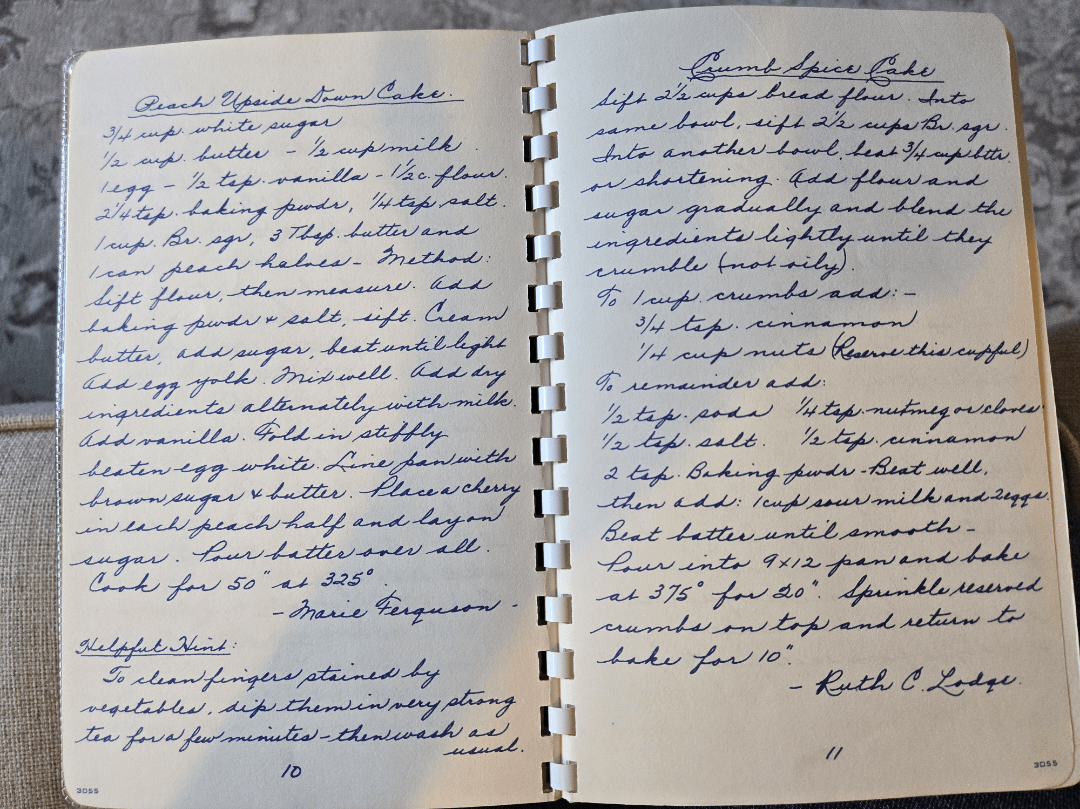 Peach Upside Down Cake.
3/4 cup. white sugar
1/2 cup. butter - 1/2 cup milk.
1 egg - 1/2 tsp. vanilla - 1 1/2 c. flour.
2 1/4 tsp. baking pwdr, 1/4 tsp salt.
1 cup. Br. sgr, 3 Tbsp. butter and
1 can peach halves - Method:
Sift flour, then measure. Add
baking pwdr & salt, sift. Cream
butter, add sugar, beat until light
Add egg yolk. Mix well. Add dry
ingredients alternately with milk.
Add vanilla. Fold in stiffly
beaten egg white. Line pan with
brown sugar & butter. Place a cherry
in each peach half and lay on
sugar. Pour batter over all.
Cook for 50" at 325°.
- Marie Ferguson -
Helpful Hint:
To clean fingers stained by
vegetables, dip them in very strong
tea for a few minutes - then wash as
usual.
10
3055
Crumb Spice Cake
Sift 2 1/2 cups bread flour. Into
same bowl, sift 2 1/2 cups Br. sgr.
Into another bowl, beat 3/4 cup bttr.
or shortening. Add flour and
sugar gradually and blend the
ingredients lightly until they
crumble (not oily).
To 1 cup. crumbs add: -
3/4 tsp. cinnamon
1/4 cup nuts (Reserve this cupful)
To remainder add:
1/2 tsp. soda 1/4 tsp. nutmeg or cloves
1/2 tsp. salt. 1/2 tsp. cinnamon
2 tsp. Baking pwdr - Beat well,
then add: 1 cup sour milk and 2 eggs.
Beat batter until smooth -
Pour into 9x12 pan and bake
at 375° for 20". Sprinkle reserved
crumbs on top and return to
bake for 10".
- Ruth C. Lodge.
11
3055